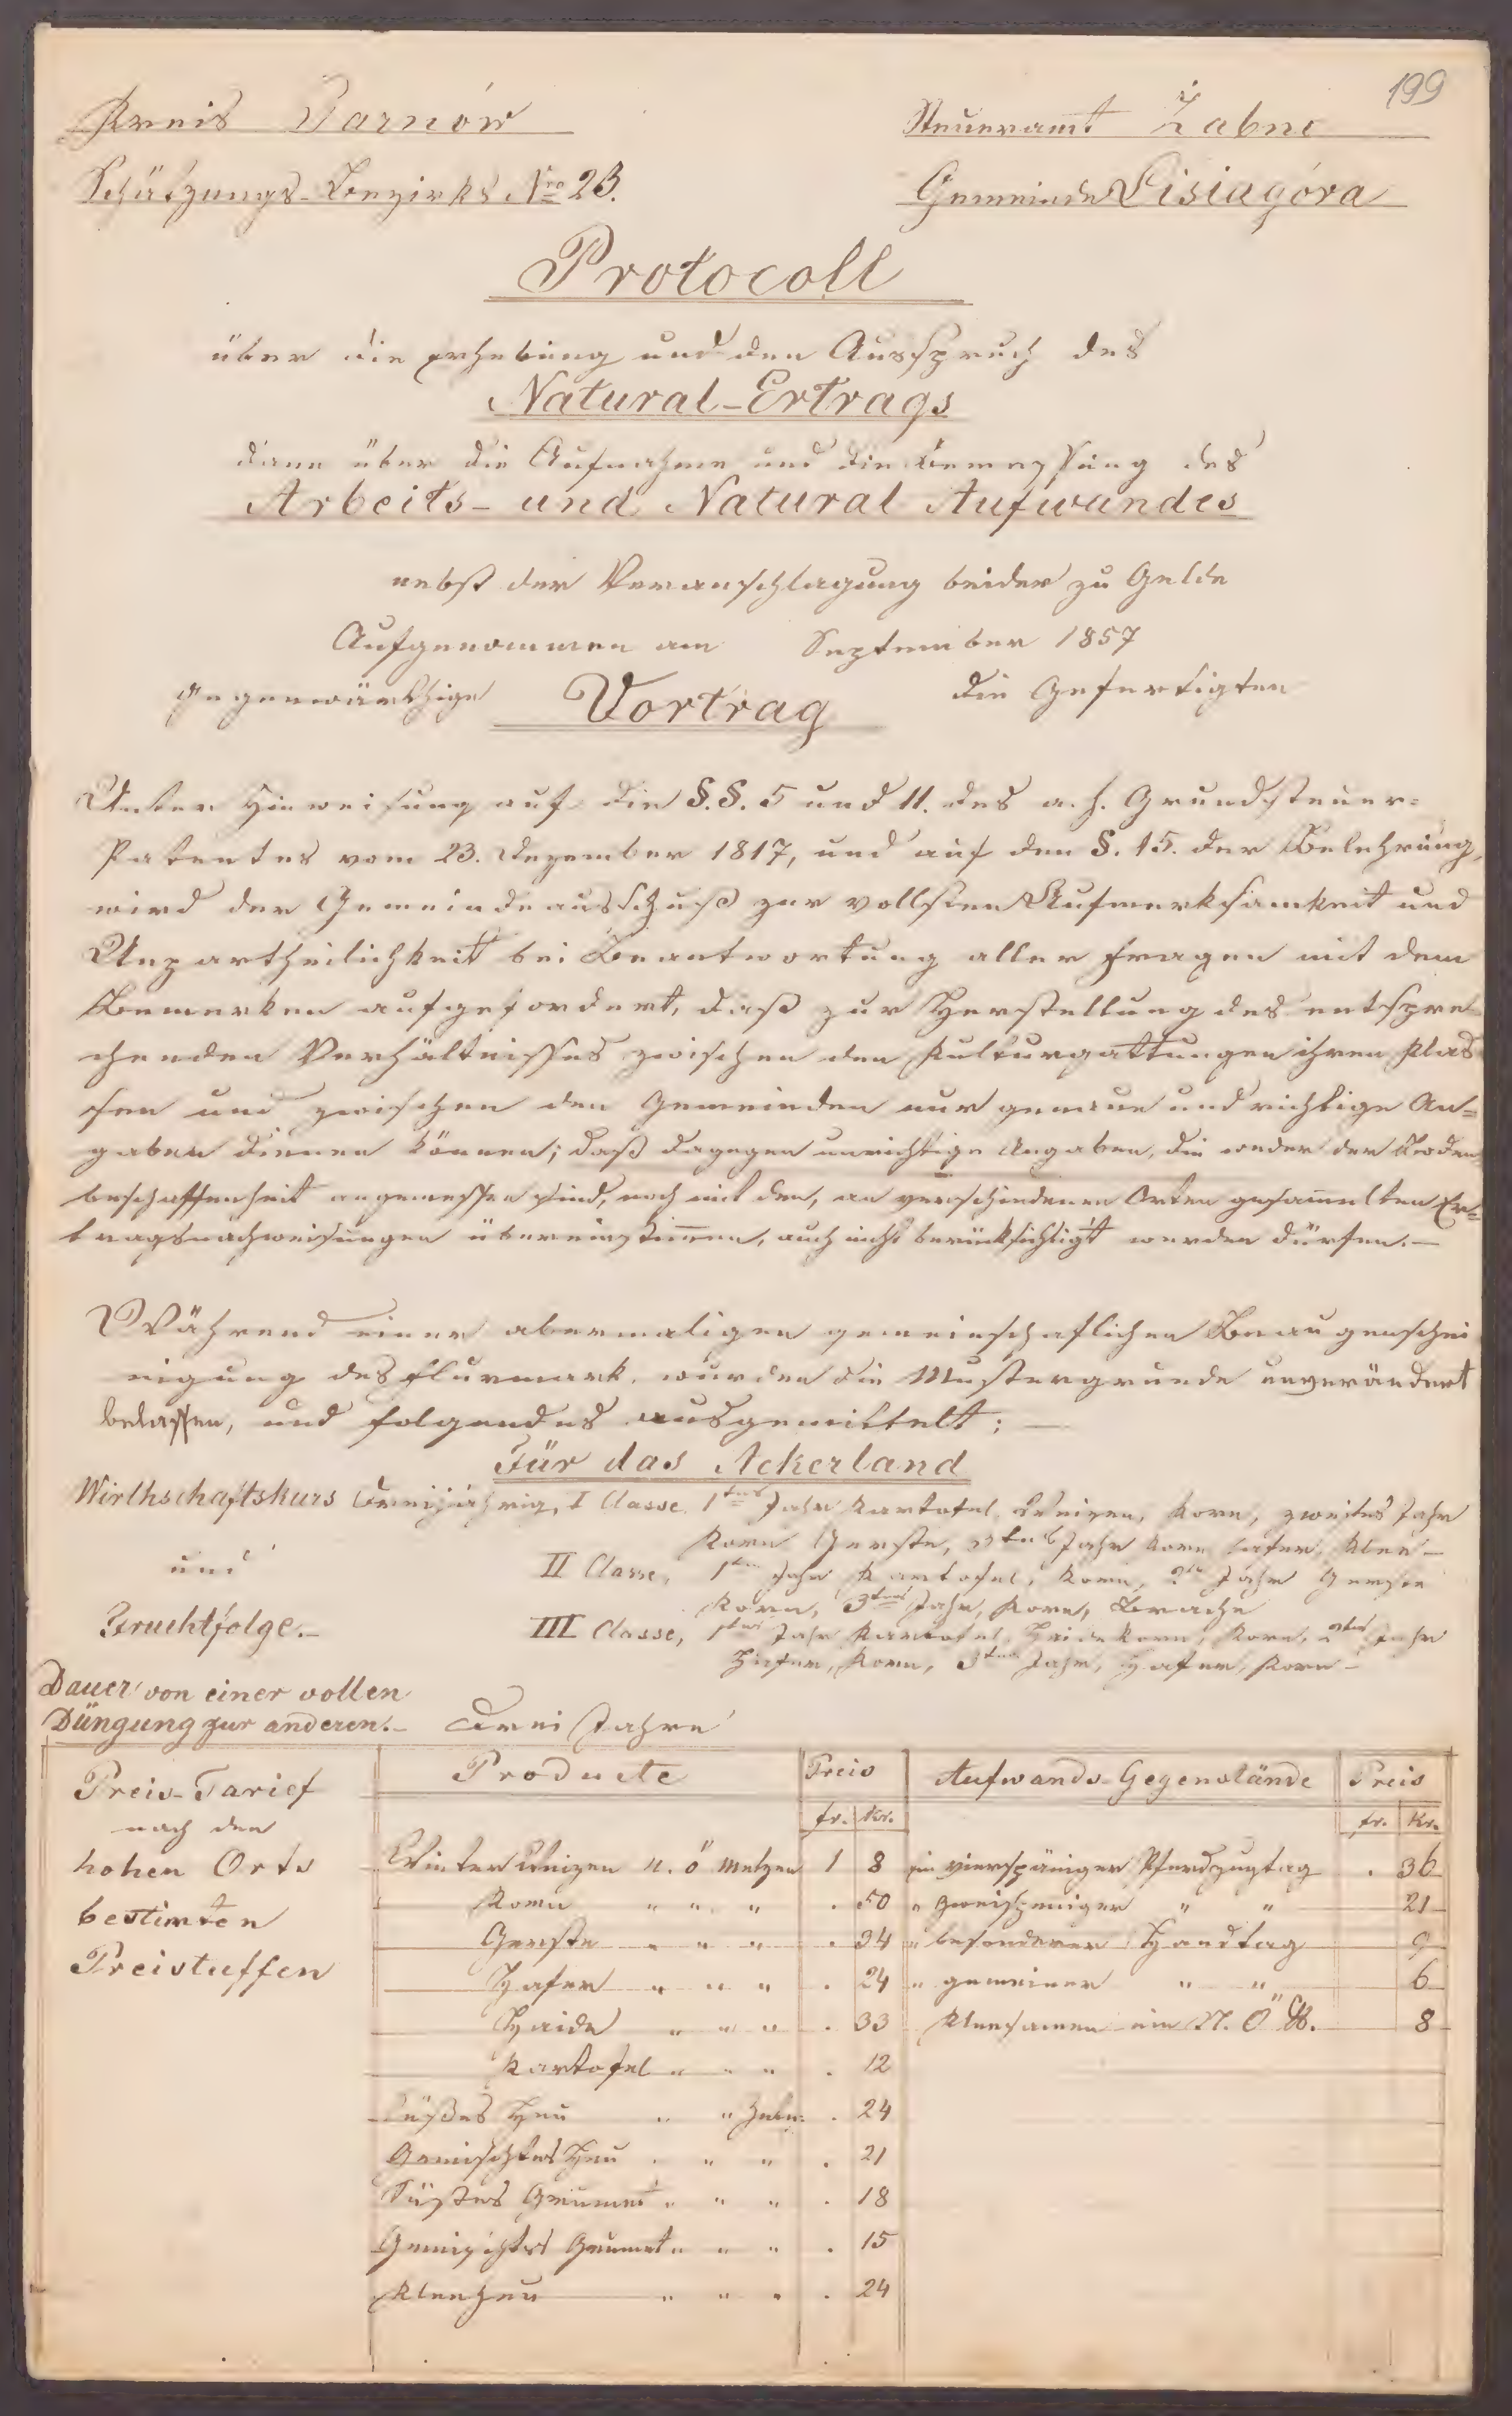 199
Kreis Tarnów
Steueramt Żabno
Schätzungs-Bezirks Nro 23.
Gemeinde Lisiagóra
Protocoll
über die Erhebung und den Ausspruch des
Natural-Ertrags
dann über die Aufnahme und die Bemessung des
Arbeits- und Natural Aufwandes
nebst der Veranschlagung beider zu Gelde
Aufgenommen am September 1857
Gegenwärthige Vortrag die Gefertigten
Unter Hinweisung auf die §.§. 5 und 11. des a. h. Grundsteuer=
Patentes vom 23. Dezember 1817, und auf den §. 15. der Belehrung,
wird der Gemeindeausschuß zur vollsten Aufmerksamkeit und
Unpartheilichkeit bei Beantwortung aller Fragen mit dem
Bemerken aufgefordert, daß zur Herstellung des entspre
chenden Verhältnisses zwischen den Kulturgattungen ihren Klas
sen und zwischen den Gemeinden nur genaue und richtige An=
gaben dienen können; daß dagegen unrichtige Angaben, die weder der Boden
beschaffenheit angemessen sind, noch mit den, an verschiedenen Orten gesam̄elten Er=
tragsnachweisungen übereinstim̄en, auch nicht berücksichtigt werden dürfen.—
Während einer abermaligen gemeinschaftlichen Beaugenschei
nigung des Flurmark, wurden die Mustergrunde unverändert
belassen, und folgendes ausgemittelt:—
Für das Ackerland
Wirthschaftskurs Dreijährig, I Classe 1tes Jahr Kartofel, Weizen, Korn, zweites Jahr
Korn Gerste, 3tes Jahr Korn Hafer, Klee—
und II Classe, 1tes Jahr Kartofel, Korn, 2tes Jahr Gerste
Korn, 3tes Jahr, Korn, Brache
Fruchtfolge.— III Classe, 1tes Jahr Kartofel, Heidekorn, Korn, 2tes Jahr
Hafer, Korn, 3tes Jahr, Hafer, Korn—
Dauer von einer vollen
Düngung zur anderen.— Drei Jahre
Preis-Tarief Producte Preis Aufwands-Gegenstände Preis
nach den fr. Kr. fr. Kr.
hohen Orts Winter Weizen n. ö Metzen 1 8 ein vierspäniger Pferdzugtag . 36
bestimten Korn " " " . 50 " zweispeniger " " 21
Preistuffen Gerste " " " . 34 " besonderer Handtag 9
Hafer " " " . 24 " gemeiner " " 6
Haide " " " . 33 Kleesamen ein N. Ö ℔. 8
Kartofel " " " . 12
Süßes Heu " " Zent: . 24
Gemischtes Heu " " " . 21
Süßes Grumet " " " . 18
Gemischtes Grumet " " " . 15
Kleeheu " " " . 24